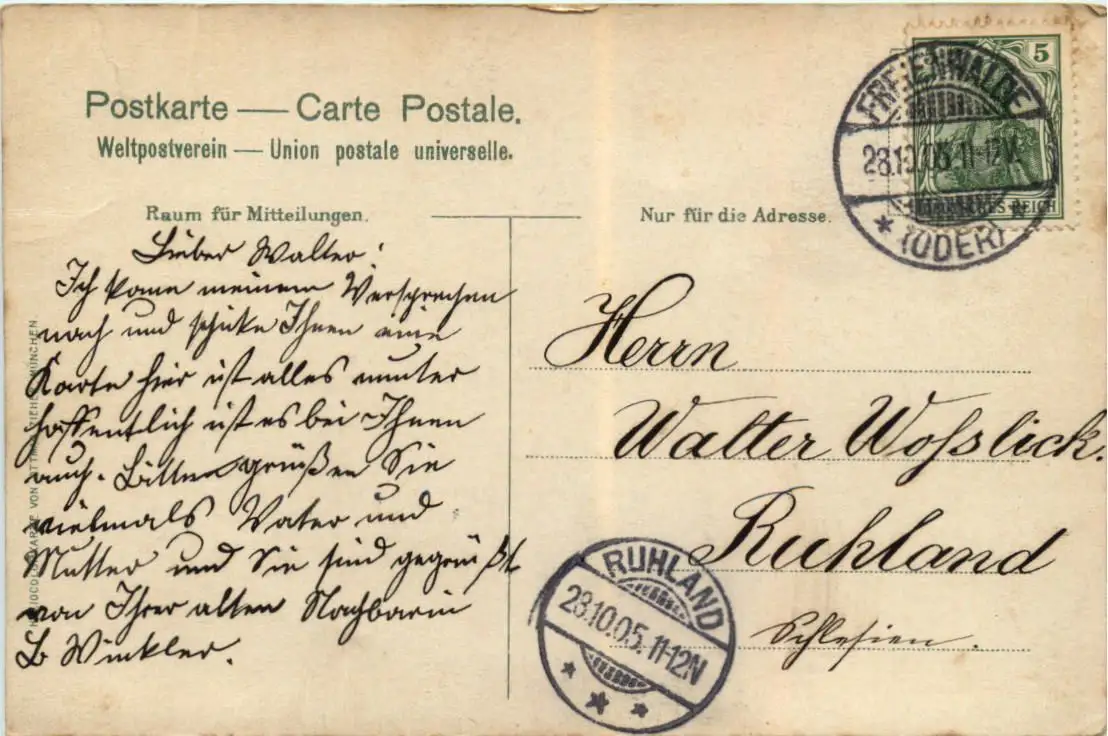 Postkarte — Carte Postale.
Weltpostverein — Union postale universelle.
Raum für Mitteilungen.
Nur für die Adresse.
5
FREIENWALDE
28.10.05.11-12V.
* (ODER) *
REICH
Lieber Walter!
Ich kome meinem Versprechen
nach und schicke Ihnen eine
Karte hier ist alles munter
hoffentlich ist es bei Ihnen
auch. Bitte grüßen Sie
vielmals Vater und
Mutter und Sie sind gegrüßt
von Ihrer alten Nachbarin
B Winkler.
Herrn
Walter Wosslick.
Ruhland
Schlesien.
RUHLAND
28.10.05.11-12N
MÜNCHEN